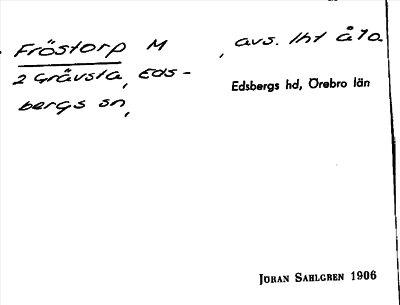 Fröstorp M , avs. lht å 1o.
2 Grävsta, Eds-
bergs sn,
Edsbergs hd, Örebro län
JÖRAN SAHLGREN 1906